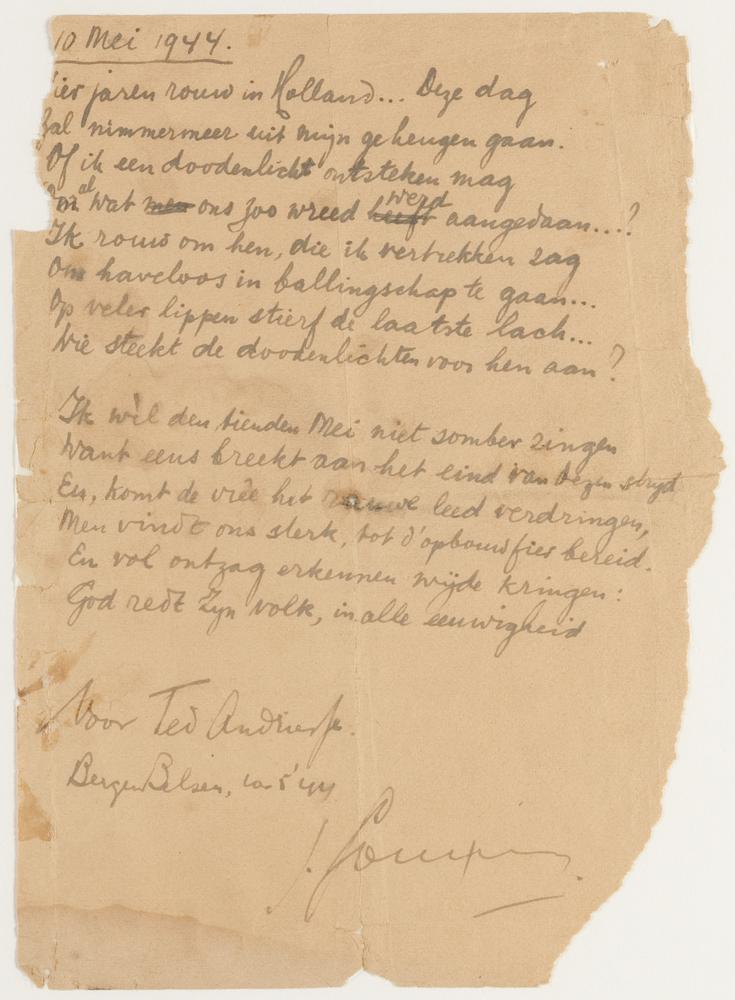 10 Mei 1944.
Vier jaren rouw in Holland... Deze dag
Zal nimmermeer uit mijn geheugen gaan.
Of ik een doodenlicht ontsteken mag
Om al wat men ons zoo wreed heeft werd aangedaan...?
Ik rouw om hen, die ik vertrekken zag
Om haveloos in ballingschap te gaan...
Op veler lippen stierf de laatste lach...
Wie steekt de doodenlichten voor hen aan?
Ik wil den tienden Mei niet somber zingen
Want eens breekt aan het eind van dezen strijd
En, komt de vreê het rauwe leed verdringen,
Men vindt ons sterk, tot d'opbouw fier bereid.
En vol ontzag erkennen wijde kringen:
God redt Zijn volk, in alle eeuwigheid
Voor Ted Andriesse.
Bergen Belsen, 10-5'44
J.